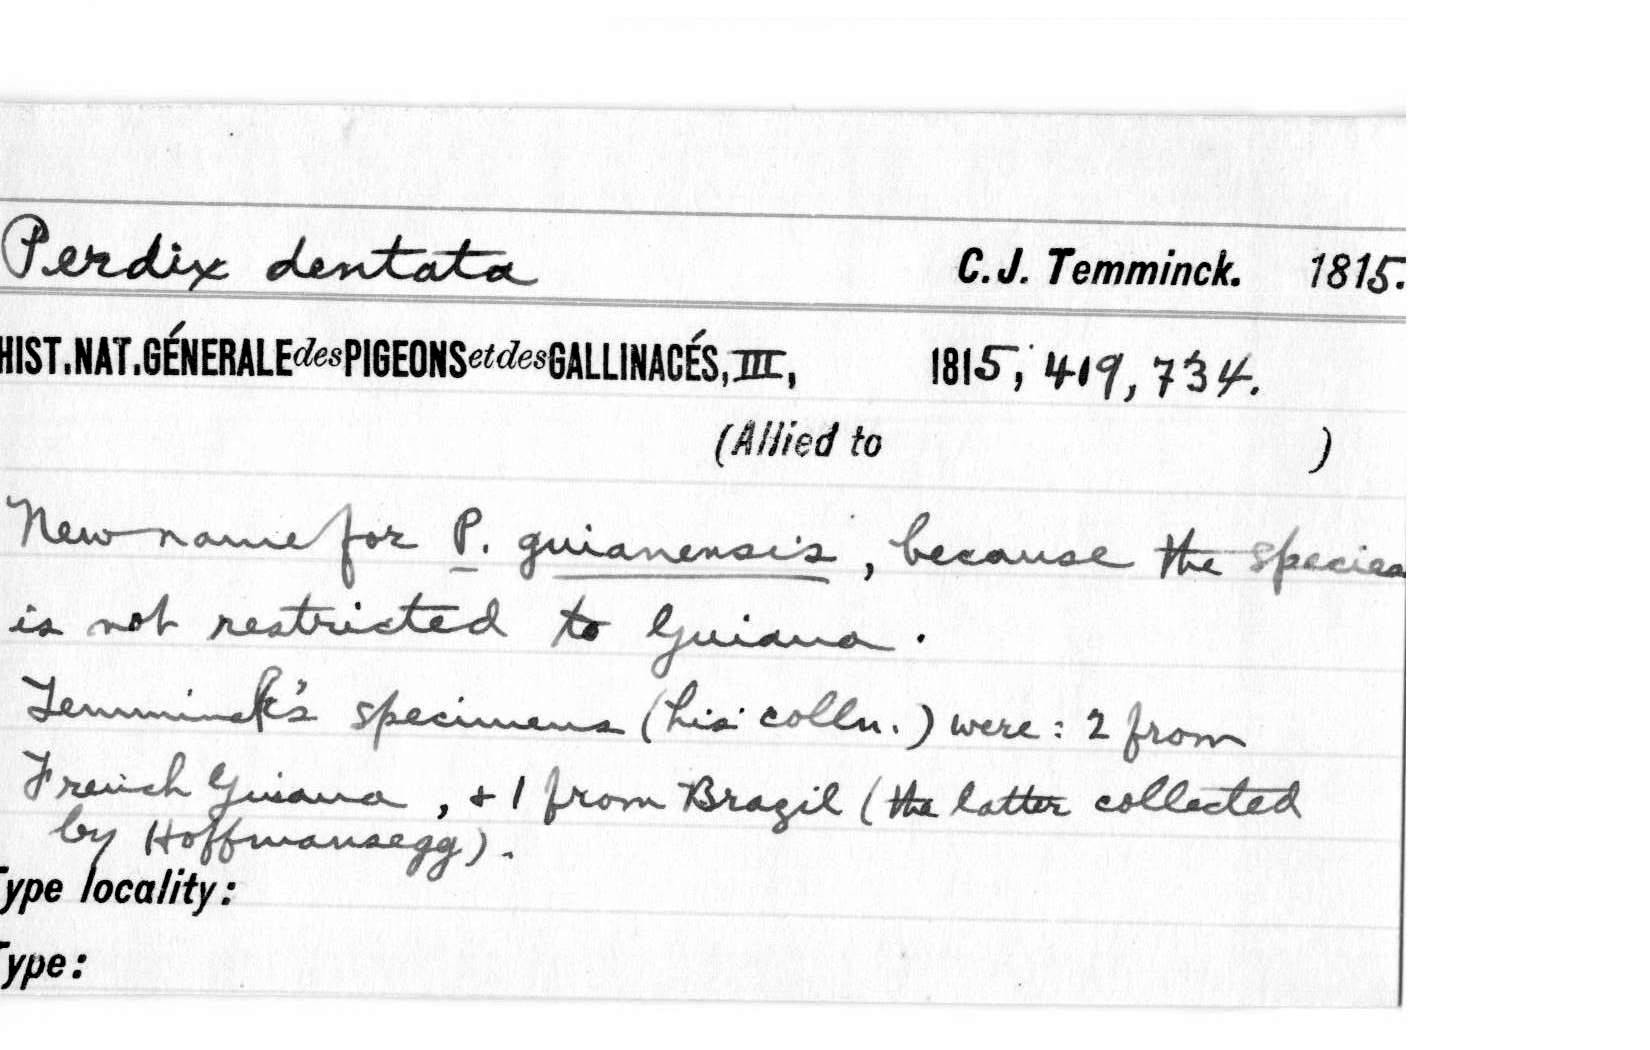 Perdix dentata C.J. Temminck. 1815.
HIST.NAT.GÉNERALE des PIGEONS et des GALLINACÉS, III, 1815, 419, 734.
(Allied to )
New name for P. guianensis, because the species
is not restricted to Guiana.
Temminck's specimens (his colln.) were: 2 from
French Guiana, & 1 from Brazil (the latter collected
by Hoffmansegg).
Type locality:
Type: